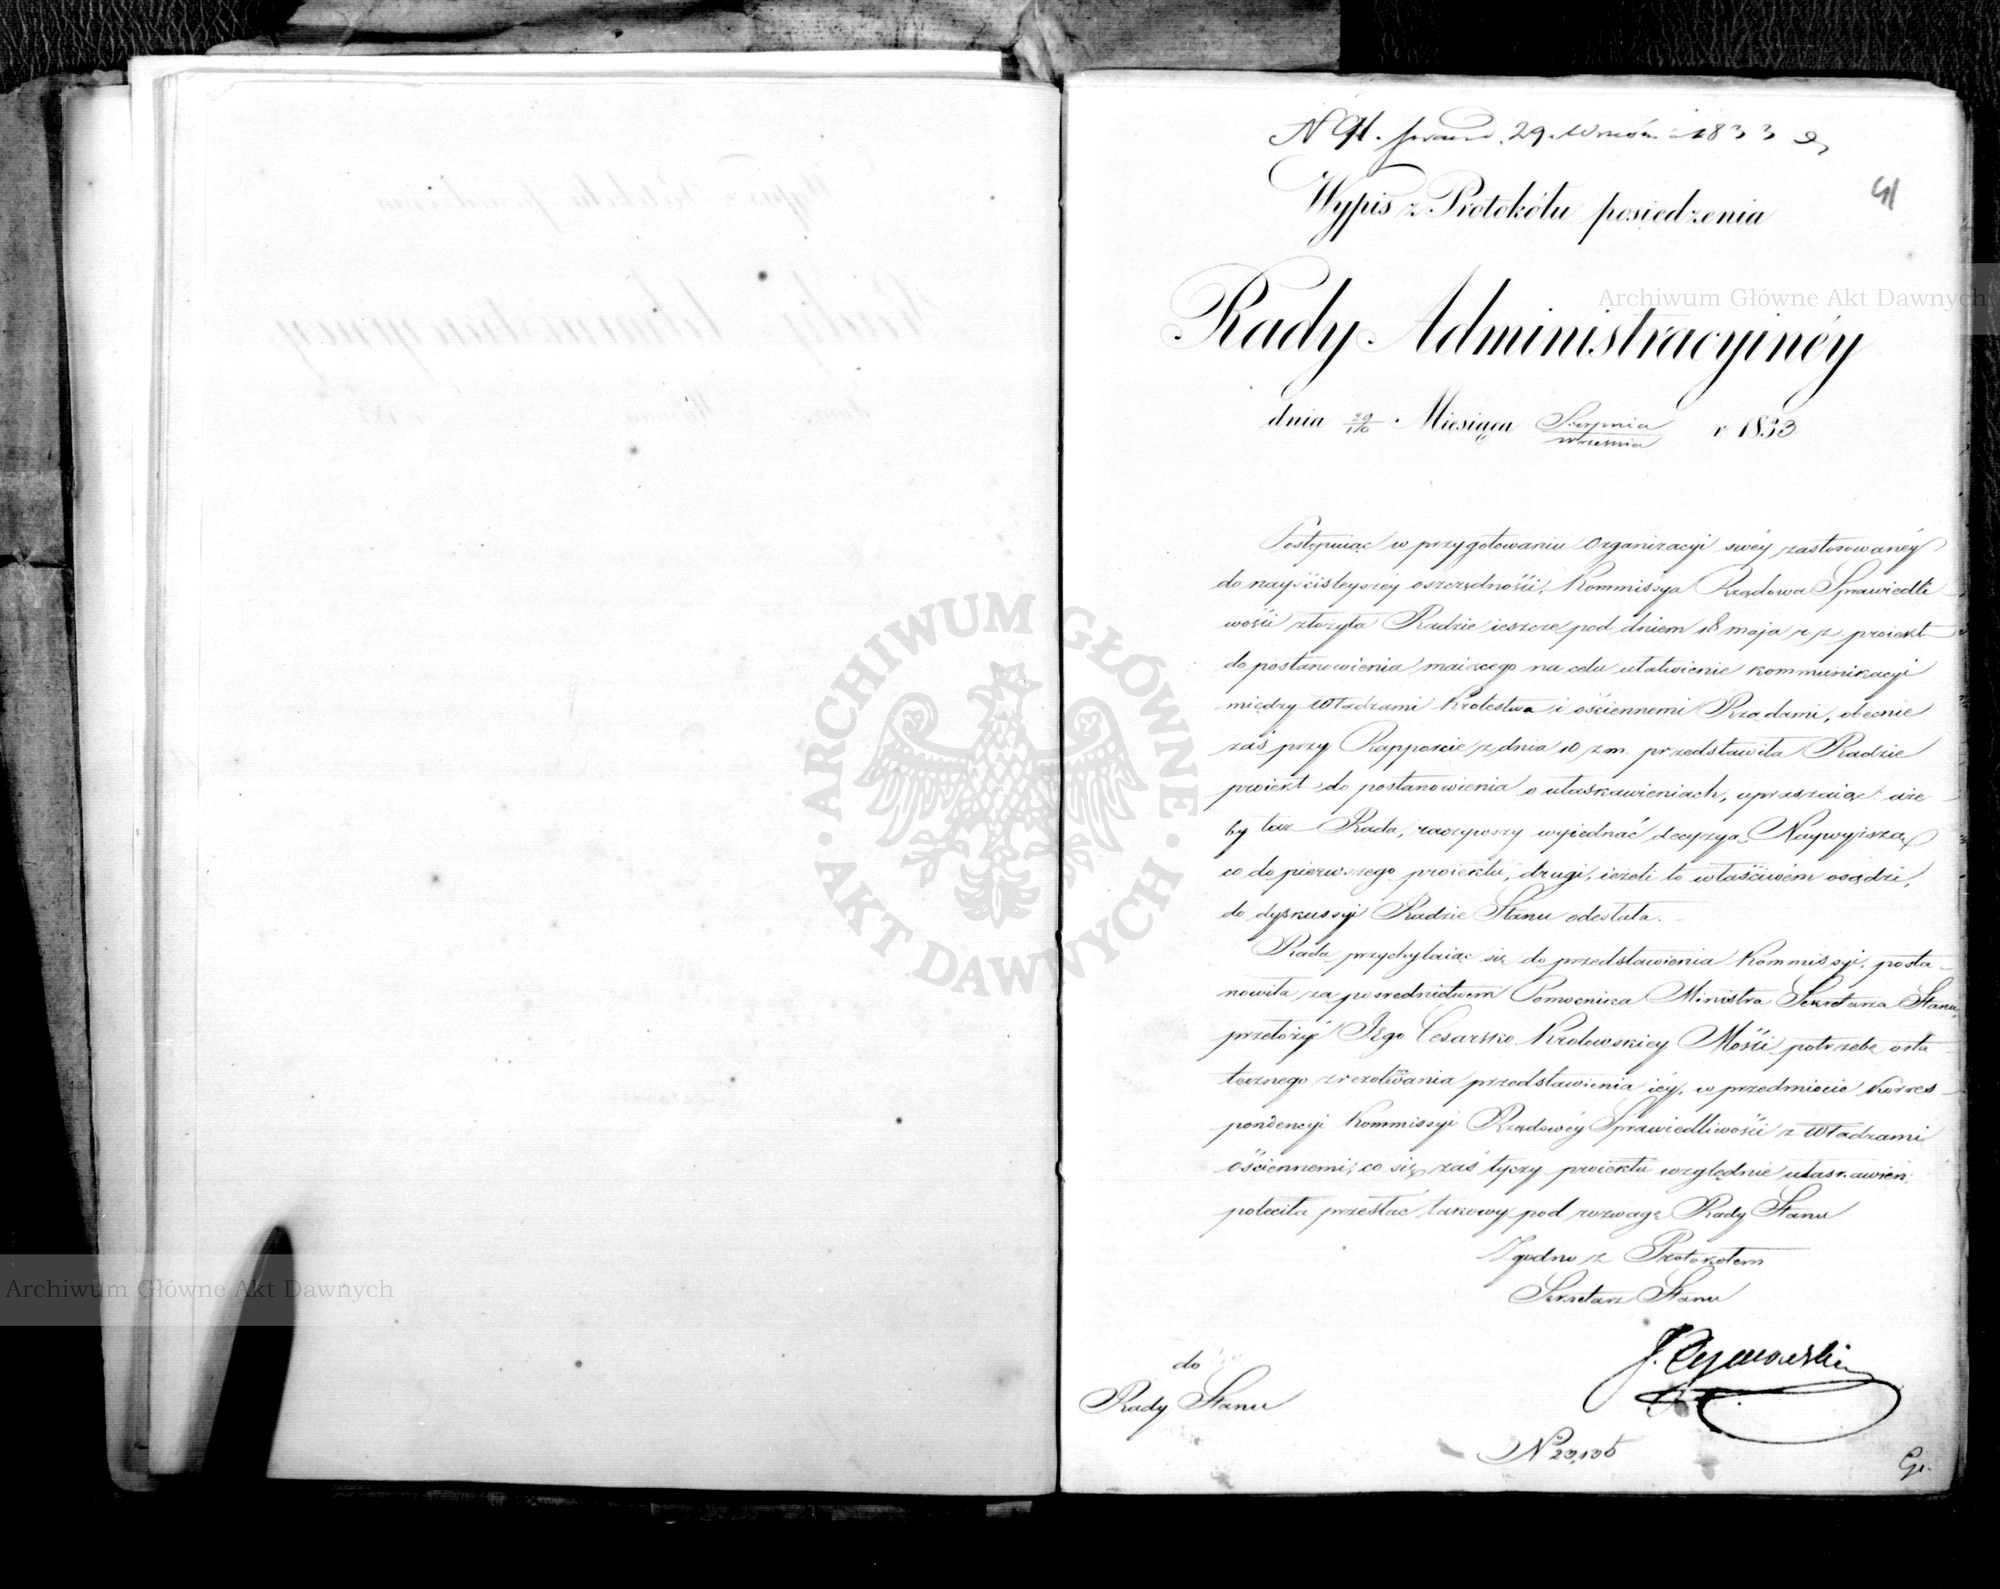 N 91. 29. Wrześn: 1833
91
Wypis z Protokółu posiedzenia
Rady Administracyinéy
dnia 29/10 Miesiąca Sierpnia/Września r 1833
Postępuiąc w przygotowaniu Organizacyi swéy zastosowanéy
do nayściśleyszéy oszczędności, Kommissya Rządowa Sprawiedli
wości złożyła Radzie ieszcze pod dniem 18 maja r. z. proiekt
do postanowienia maiącego na celu ułatwienie kommunikacyi
między Władzami Królestwa i ościennemi Rządami, obecnie
zaś przy Rapporcie z dnia 10 z. m. przedstawiła Radzie
proiekt do postanowienia o ułaskawieniach, upraszaiąc aże
by taż Rada, raczywszy wyiednać decyzyą Naywyższą
co do pierwszego proiektu, drugi, ieżeli to właściwém osądzi,
do dyskussyi Radzie Stanu odesłała.
Rada przychylaiąc się do przedstawienia Kommissyi, posta-
nowiła za pośrednictwem Pomocnika Ministra Sekretarza Stanu,
przełożyć Jego Cesarsko Królewskiey Mości potrzebę osta
tecznego zrezolwowania przedstawienia iéy, w przedmiocie korres-
pondencyi Kommissyi Rządowéy Sprawiedliwości z Władzami
ościennemi; co się zaś tyczy proiektu względnie ułaskawień,
poleciła przesłać takowy pod rozwagę Rady Stanu
Zgodno z Protokołem
Sekretarz Stanu
J. Tymowski
do
Rady Stanu
No 23,135
Archiwum Główne Akt Dawnych
Archiwum Główne Akt Dawnych
ARCHIWUM GŁÓWNE · AKT DAWNYCH ·